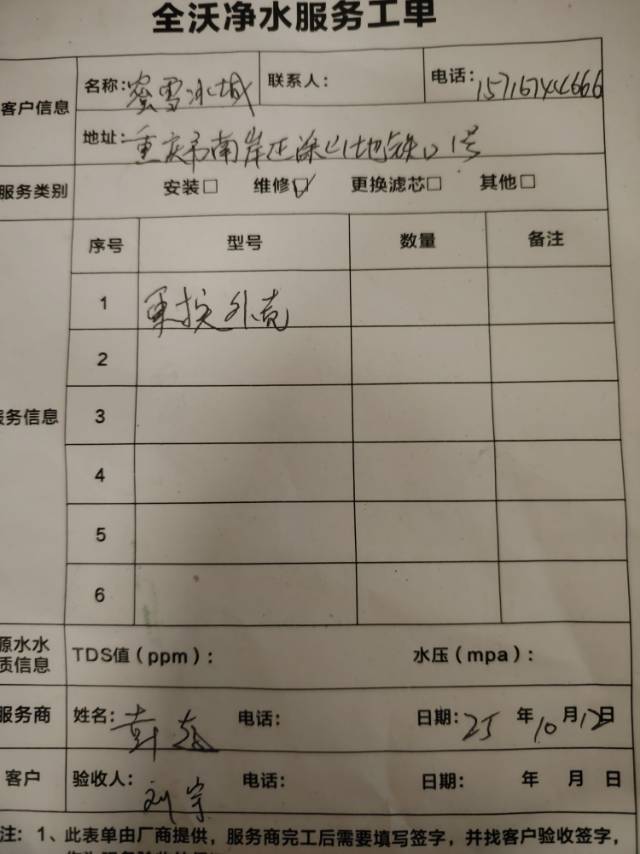 全沃净水服务工单
客户信息
名称：蜜雪冰城 联系人： 电话：
地址：重庆市南岸区涂山地铁口1号
服务类别 安装□ 维修☑ 更换滤芯□ 其他□
序号 型号 数量 备注
1 更换外壳
2
服务信息 3
4
5
6
原水水
质信息
TDS值（ppm）： 水压（mpa）：
服务商 姓名：彭 电话： 日期：25 年 10 月 12 日
客户 验收人：刘宇 电话： 日期： 年 月 日
注：1、此表单由厂商提供，服务商完工后需要填写签字，并找客户验收签字，